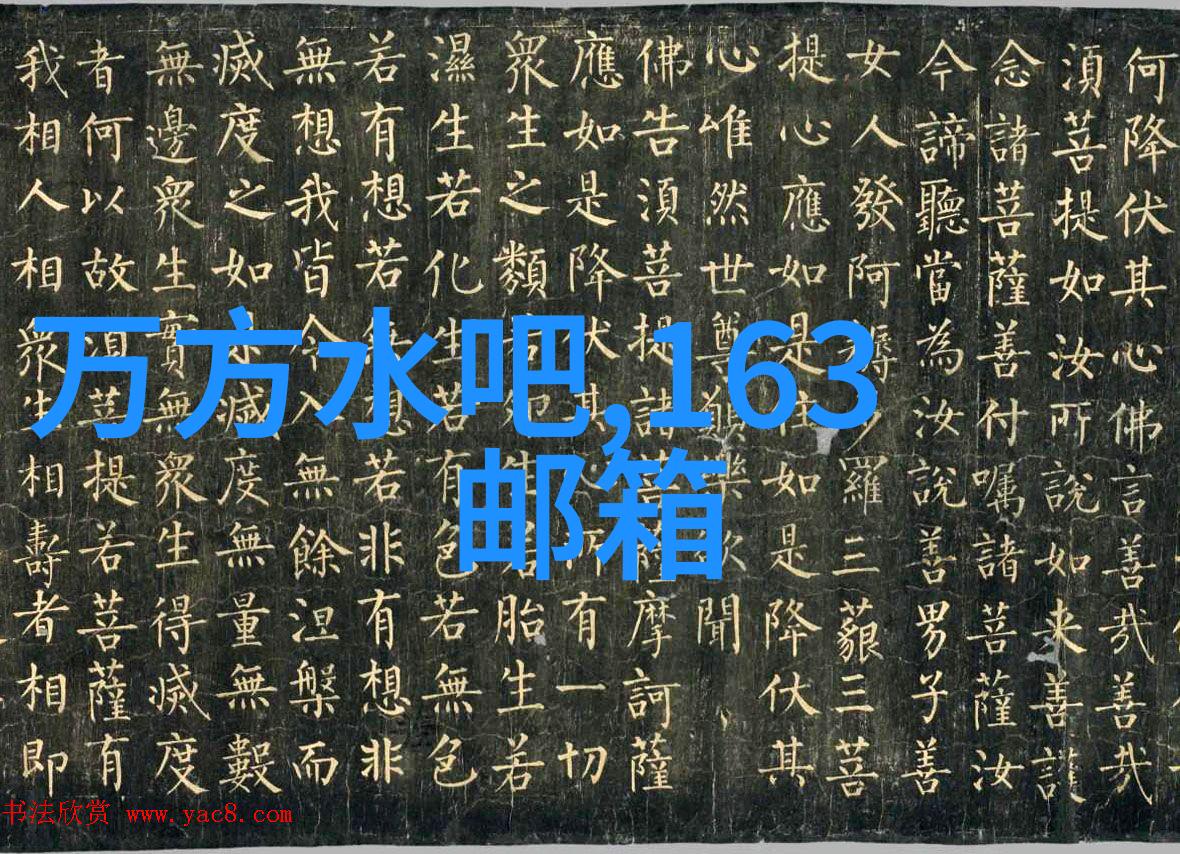 何降伏其心佛言善哉善哉
須菩提如汝所說如来善護
念諸菩薩善付嘱諸菩薩汝
今諦聽當為汝說善男子善
女人發阿耨多羅三藐三菩
提心應如是住如是降伏其
心唯然世尊願樂欲聞
佛告須菩提諸菩薩摩訶薩
應如是降伏其心所有一切
衆生之類若卵生若胎生若
濕生若化生若有色若無色
若有想若無想若非有想非
無想我皆令入無餘涅槃而
滅度之如是滅度無量無數
無邊衆生實無衆生得滅度
者何以故須菩提若菩薩有
我相人相衆生相壽者相即
万方水吧,163
邮箱
书法欣赏 www.yac8.com